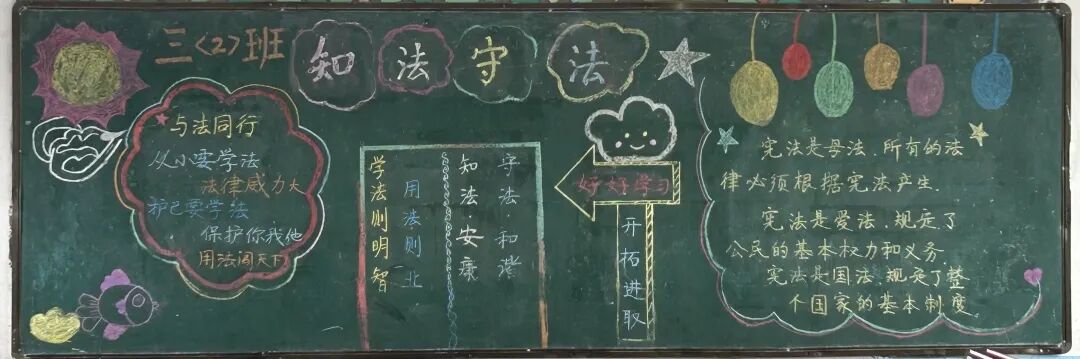 三〈2〉班 知法守法
与法同行
从小要学法
法律威力大
护己要学法
保护你我他
用法闯天下
学法则明智
用法则业
知法·安康
守法·和谐
好好学习
开拓进取
宪法是母法、所有的法
律必须根据宪法产生.
宪法是爱法、规定了
公民的基本权力和义务.
宪法是国法、规定了整
个国家的基本制度